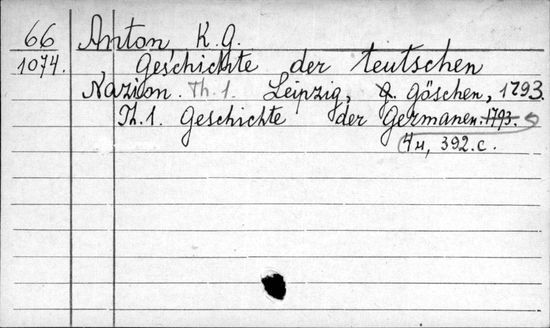 66 Anton K. G.
1074. Geschichte der teutschen
Nazion. Th. 1. Leipzig, G. Göschen, 1793.
Th. 1. Geschichte der Germanen. 1793.
4н, 392 c.